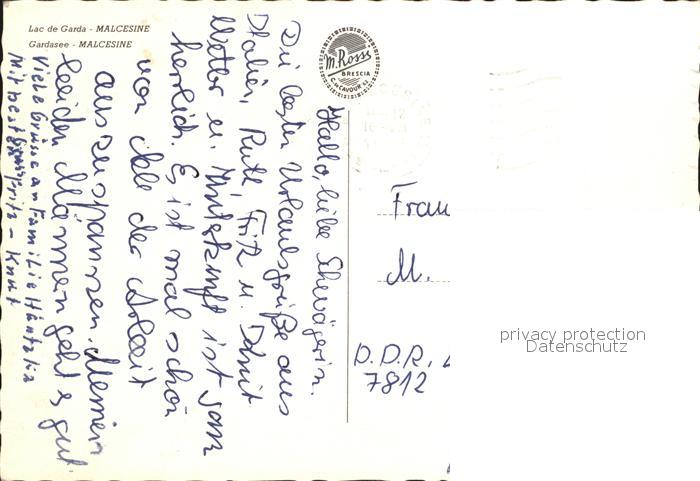 Lac de Garda - MALCESINE
Gardasee - MALCESINE
M. Rossi
BRESCIA
C. so CAVOUR
Hallo, liebe Schwägerin.
Die besten Urlaubsgrüße aus
Italien, Ruth, Fritz u.
Wetter u. Unterkunft ist ganz
herrlich. Es ist mal schön
von der Arbeit
auszuspannen. Meinen
beiden Männern geht es gut.
Viele Grüsse an Familie
Mit besten Fritz - Knut
Frau
M.
D.D.R.
7812
privacy protection
Datenschutz